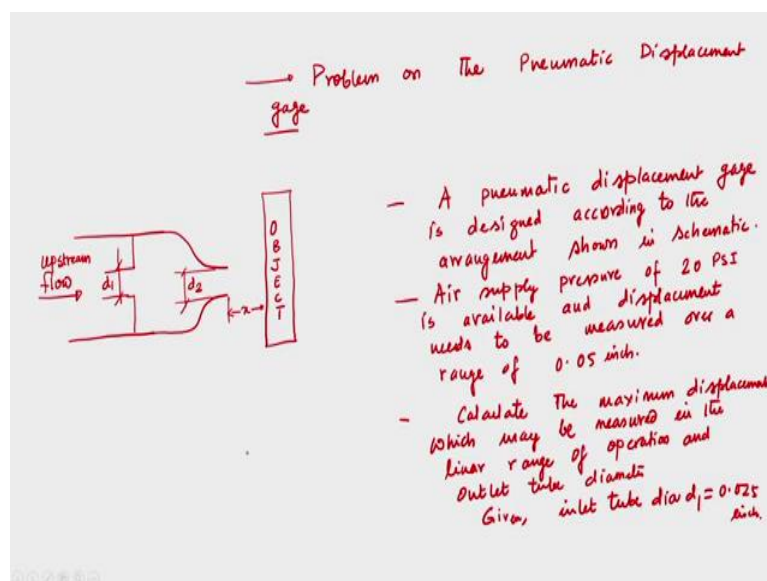 → Problem on The Pneumatic Displacement
gage
- A pneumatic displacement gage
is designed according to the
arrangement shown in schematic.
- Air supply pressure of 20 PSI
is available and displacement
needs to be measured over a
range of 0.05 inch.
- Calculate The maximum displacement
which may be measured in the
linear range of operation and
outlet tube diameter
Given, inlet tube dia d1 = 0.025
inch.
upstream
flow
d1
d2
x
OBJECT